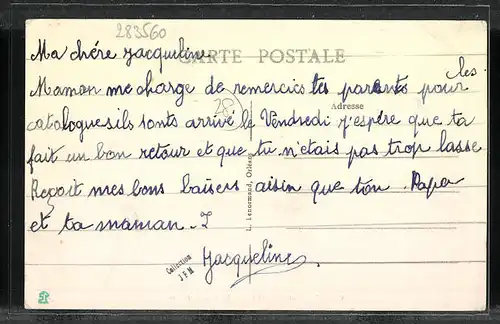 283560
Ma chére Jacqueline
CARTE POSTALE
Maman me charge de remercier tes parents pour les
Adresse
catalogues ils sonts arrivé le Vendredi j'espére que ta
fait un bon retour et que tu n'etais pas trop lasse
Reçoit mes bons baisers aisin que ton Papa
et ta maman. J
Jacqueline.
L. Lenormand, Orléans
Collection
JFM